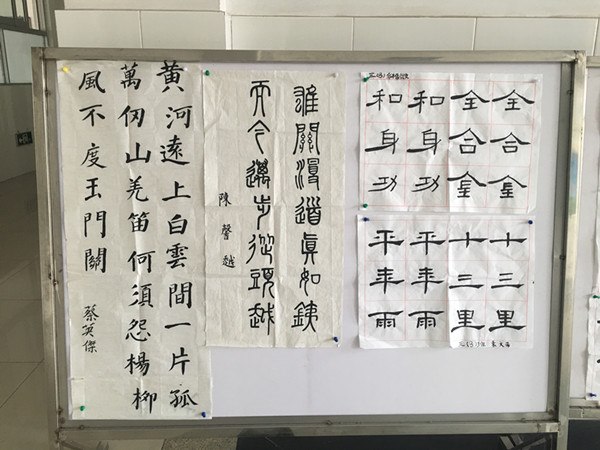 黄河遠上白雲間一片孤
萬仞山羌笛何須怨楊柳
風不度玉門關
蔡英傑
雄關漫道眞如銕
而今邁步從頭越
陳馨越
全合金
全合金
和身功
和身功
十三里
十三里
平来雨
平来雨